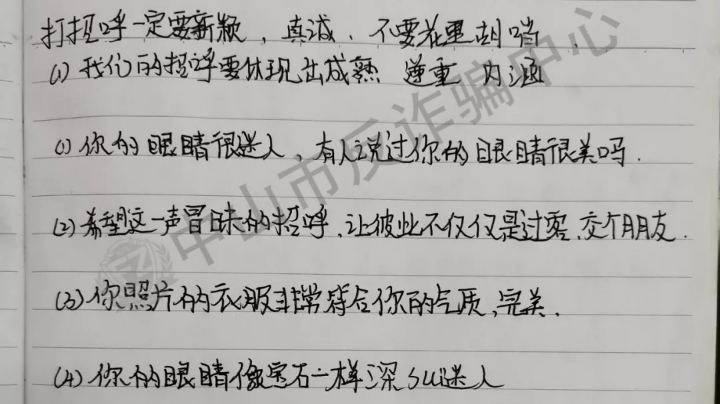 打招呼一定要新颖，真诚，不要花里胡哨，
(1)我们的招呼要体现出成熟 尊重 内涵
(1)你的眼睛很迷人，有人说过你的眼睛很美吗.
(2)希望这一声冒昧的招呼,让彼此不仅仅是过客,交个朋友.
(3)你照片的衣服非常符合你的气质,完美.
(4)你的眼睛像宝石一样深SU迷人
中山市反诈骗中心